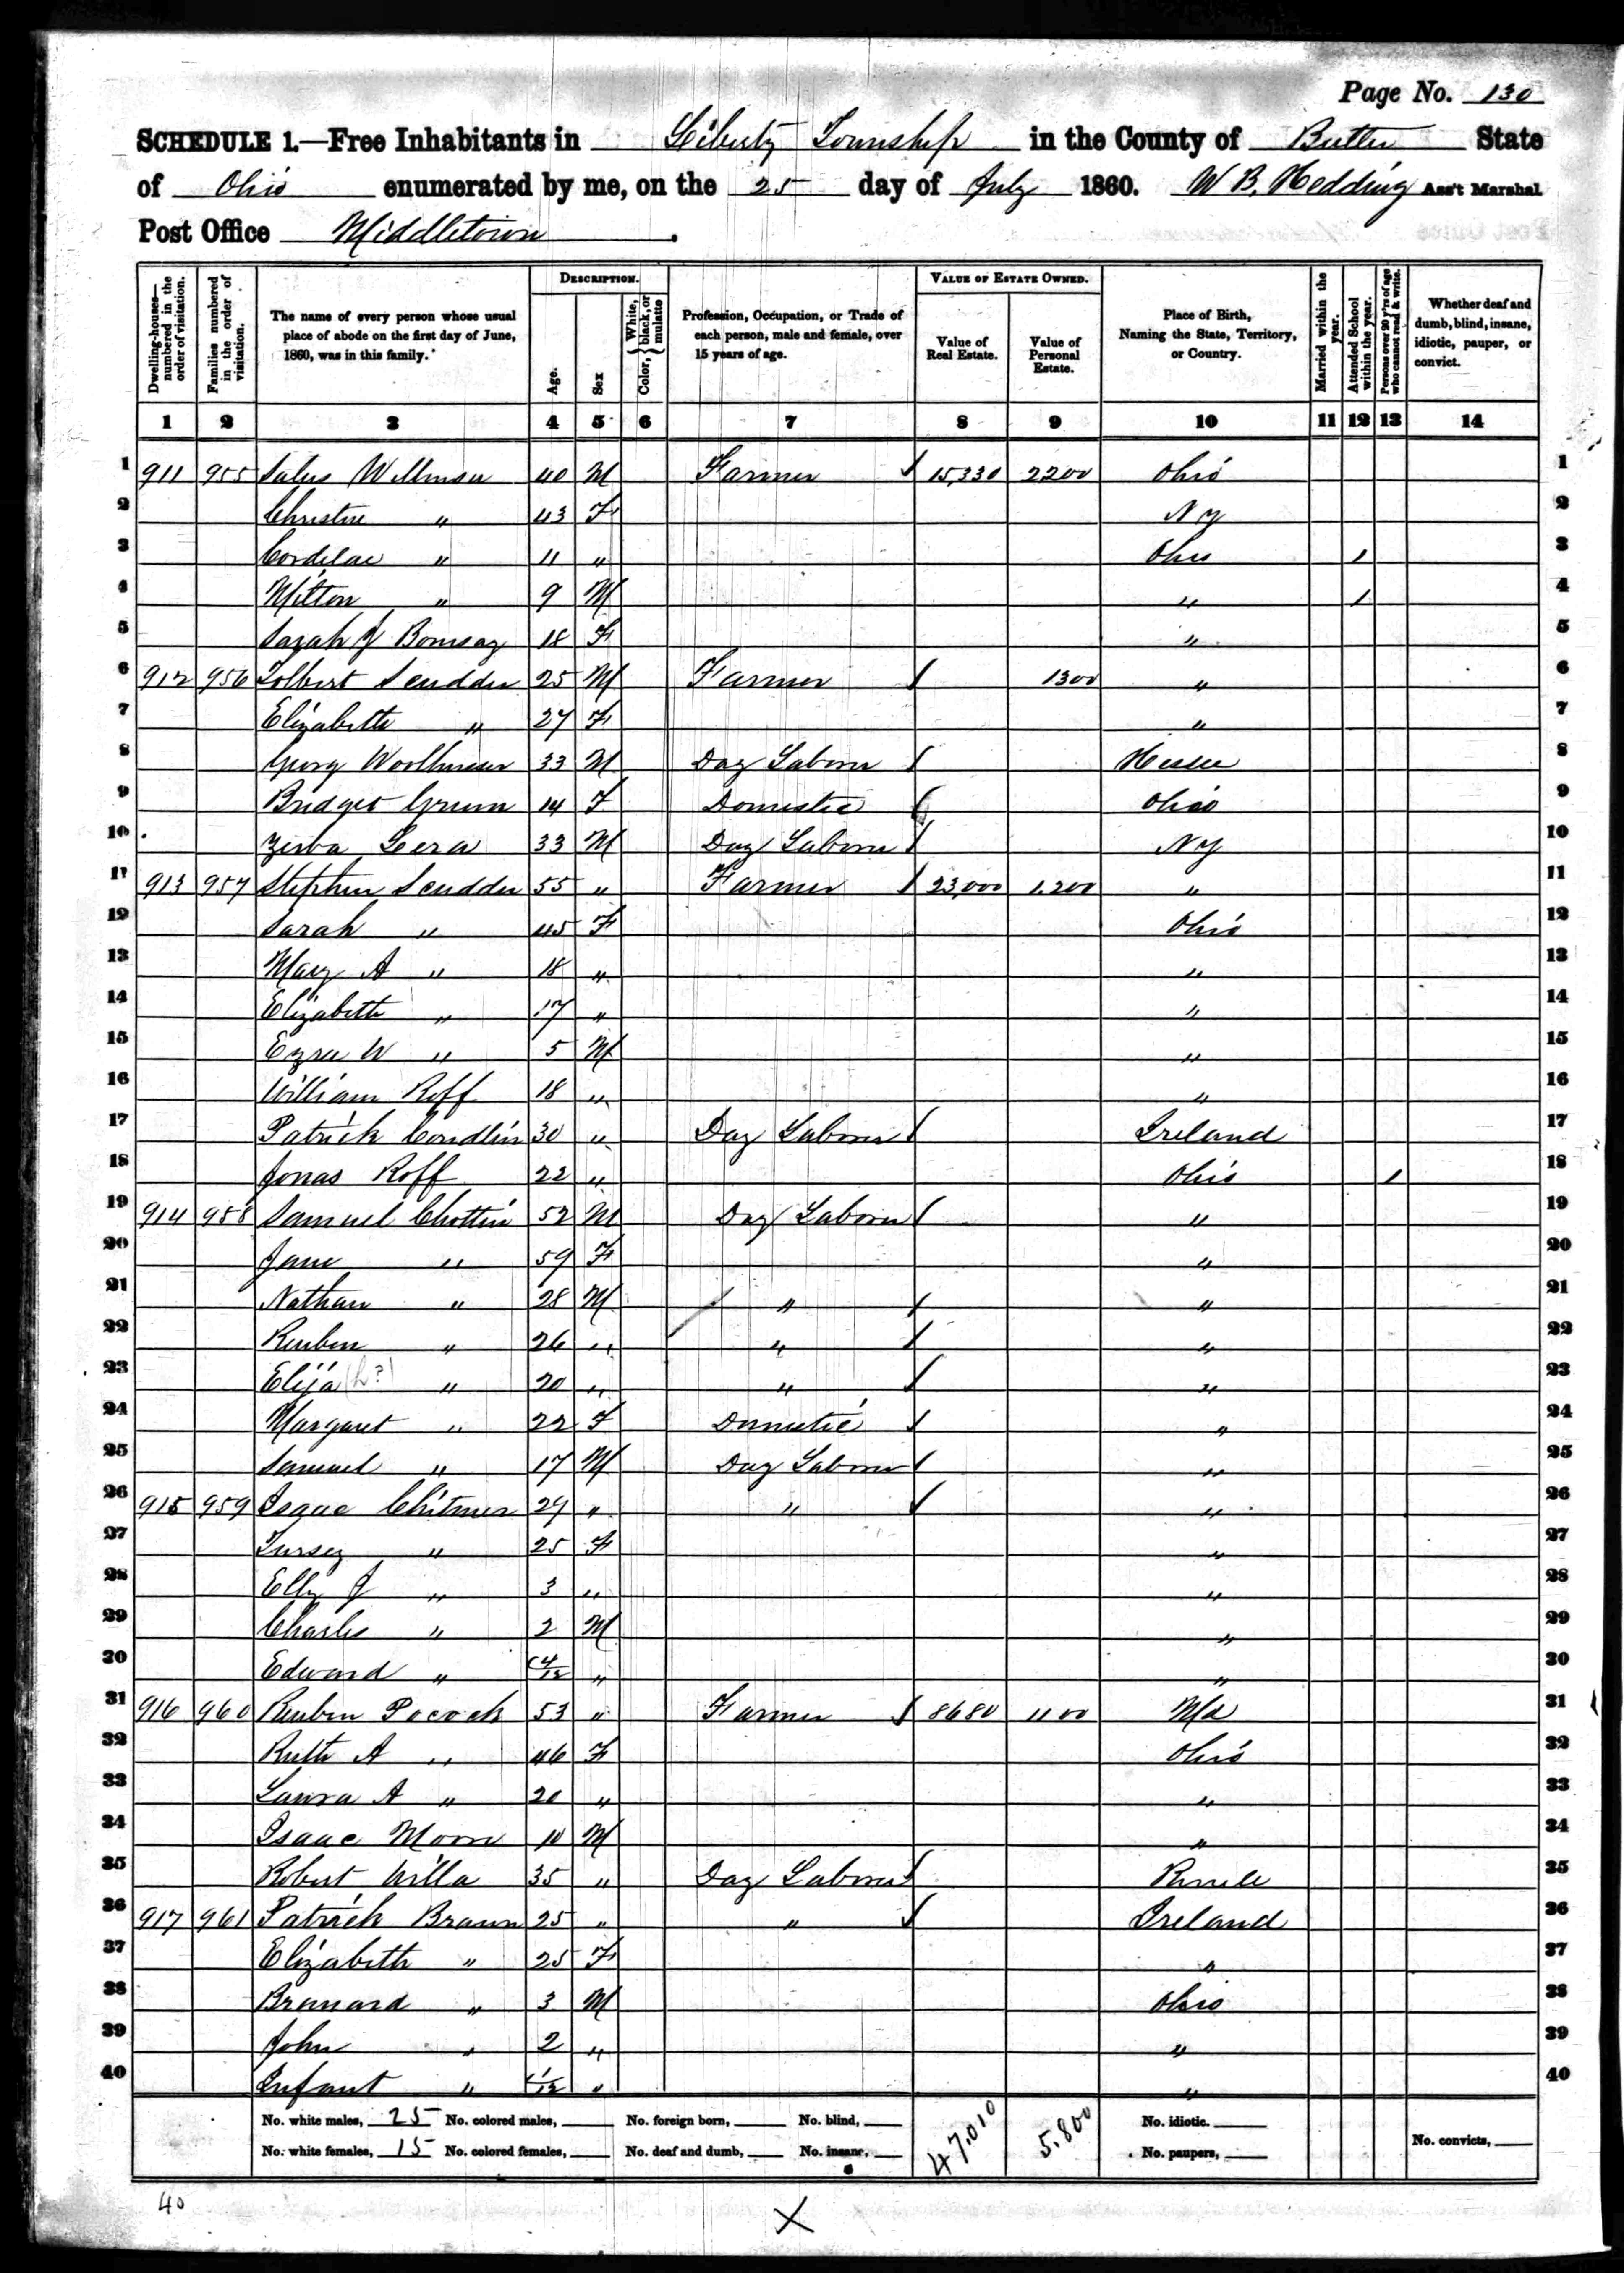 Page No. 130
SCHEDULE 1.—Free Inhabitants in Liberty Township in the County of Butler State
of Ohio enumerated by me, on the 25 day of July 1860. W B. Hedding Ass't Marshal
Post Office Middletown.
Dwelling-houses—numbered in the order of visitation.
Families numbered in the order of visitation.
The name of every person whose usual place of abode on the first day of June, 1860, was in this family.
DESCRIPTION.
Age.
Sex
Color, { White, black, or mulatto
Profession, Occupation, or Trade of each person, male and female, over 15 years of age.
VALUE OF ESTATE OWNED.
Value of Real Estate.
Value of Personal Estate.
Place of Birth, Naming the State, Territory, or Country.
Married within the year.
Attended School within the year.
Persons over 20 y'rs of age who cannot read & write.
Whether deaf and dumb, blind, insane, idiotic, pauper, or convict.
1 2 3 4 5 6 7 8 9 10 11 12 13 14
1 911 955 40 M Farmer / 15,330 2200 Ohio 1
2 Christine " 43 F N Y 2
3 " 11 " Ohio / 3
4 Milton " 9 M " / 4
5 Sarah J 18 F " 5
6 912 956 Tolbert Scudder 25 M Farmer / 1300 " 6
7 Elizabeth " 27 F " 7
8 33 M Day Laborer / 8
9 Bridget 14 F Domestic / Ohio 9
10 33 M Day Laborer / N Y 10
11 913 957 Stephen Scudder 55 " Farmer / 23,000 1.200 " 11
12 Sarah " 45 F Ohio 12
13 Mary A " 18 " " 13
14 Elizabeth " 17 " " 14
15 Ezra W " 5 M " 15
16 William Roff 18 " " 16
17 Patrick Condlin 30 " Day Laborer / Ireland 17
18 Jonas Roff 22 " Ohio / 18
19 914 958 Samuel Chottin 52 M Day Laborer / " 19
20 Jane " 59 F " 20
21 Nathan " 28 M " / " 21
22 Reuben " 26 " " / " 22
23 Elija (h?) " 20 " " / " 23
24 Margaret " 22 F Domestic / " 24
25 Samuel " 17 M Day Laborer / " 25
26 915 959 Isaac 29 " " / " 26
27 " 25 F " 27
28 J " 3 " " 28
29 Charles " 2 M " 29
30 Edward " 4/12 " " 30
31 916 960 Reuben Pocock 53 " Farmer / 8680 1100 Md 31
32 Ruth A " 46 F Ohio 32
33 Laura A " 20 " " 33
34 Isaac Moore 10 M " 34
35 Robert Willa 35 " Day Laborer / 35
36 917 961 Patrick Braun 25 " " / Ireland 36
37 Elizabeth " 25 F " 37
38 " 3 M Ohio 38
39 John " 2 " " 39
40 Infant " 1/12 " " 40
No. white males, 25 No. colored males, No. foreign born, No. blind, 47.010 5.800 No. idiotic.
No. white females, 15 No. colored females, No. deaf and dumb, No. insane. No. paupers, No. convicts,
40
X